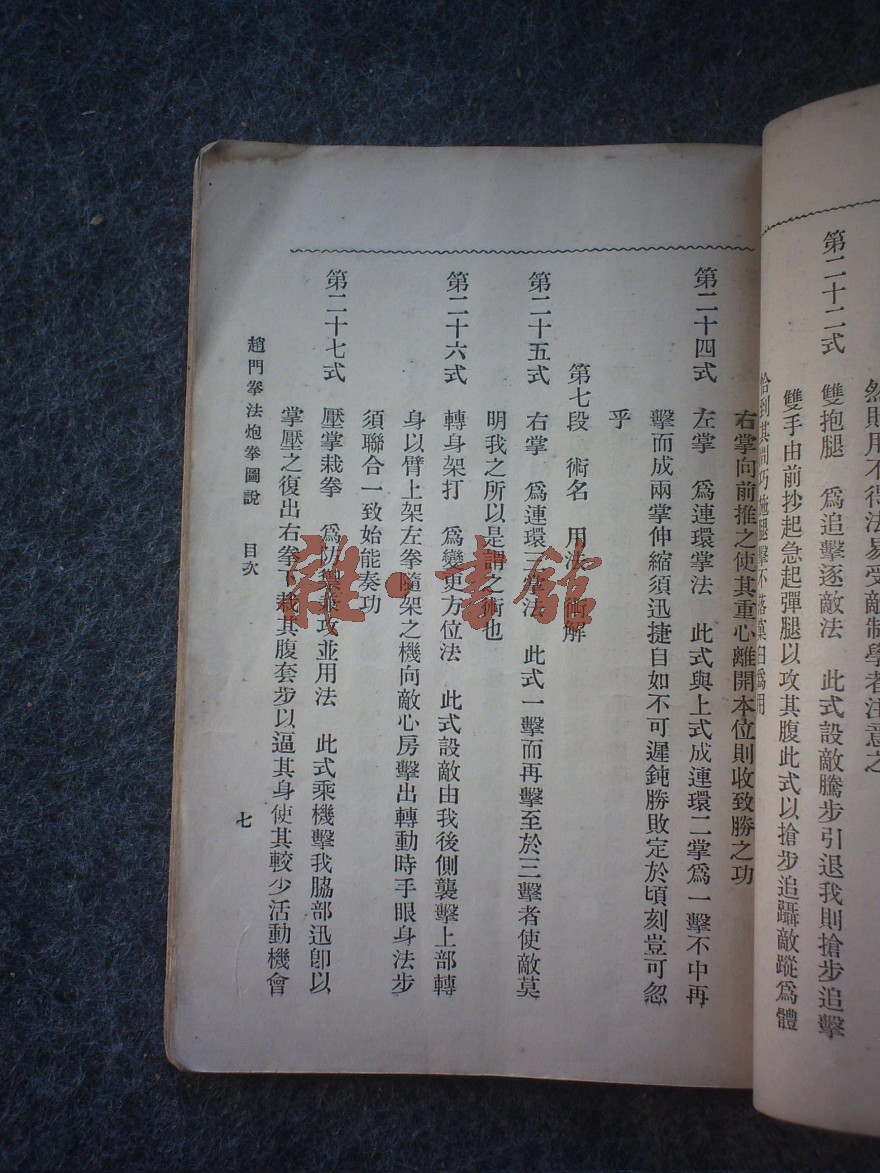 然則用不得法易受敵制學者注意之
第二十二式 雙抱腿 爲追擊逐敵法 此式設敵騰步引退我則搶步追擊
雙手由前抄起急起彈腿以攻其腹此式以搶步追躡敵蹤爲體
右掌向前推之使其重心離開本位則收致勝之功
第二十四式 左掌 爲連環掌法 此式與上式成連環二掌爲一擊不中再
擊而成兩掌伸縮須迅捷自如不可遲鈍勝敗定於頃刻豈可忽
乎
第七段 術名 用法 術解
第二十五式 右掌 爲連環三掌法 此式一擊而再擊至於三擊者使敵莫
明我之所以是謂之術也
第二十六式 轉身架打 爲變更方位法 此式設敵由我後側襲擊上部轉
身以臂上架左拳隨架之機向敵心房擊出轉動時手眼身法步
須聯合一致始能奏功
第二十七式 壓掌栽拳 爲防禦乘攻並用法 此式乘機擊我脇部迅卽以
掌壓之復出右拳下栽其腹套步以逼其身使其較少活動機會
趙門拳法炮拳圖說 目次
七
雜·書館